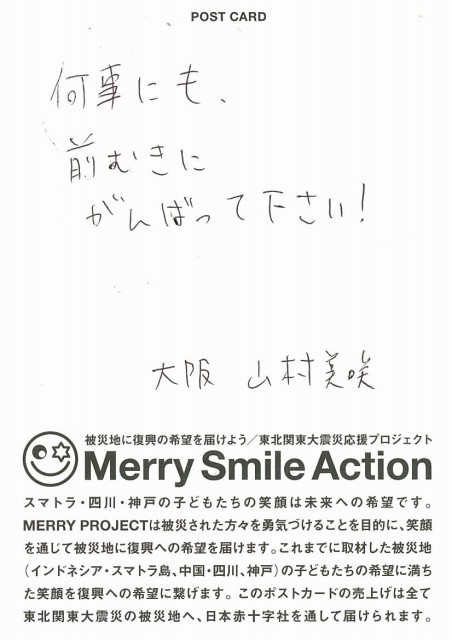 POST CARD
何事にも、
前むきに
がんばって下さい!
大阪 山村美咲
被災地に復興の希望を届けよう/東北関東大震災応援プロジェクト
Merry Smile Action
スマトラ・四川・神戸の子どもたちの笑顔は未来への希望です。
MERRY PROJECTは被災された方々を勇気づけることを目的に、笑顔
を通じて被災地に復興への希望を届けます。これまでに取材した被災地
(インドネシア・スマトラ島、中国・四川、神戸)の子どもたちの希望に満ち
た笑顔を復興への希望に繋げます。このポストカードの売上げは全て
東北関東大震災の被災地へ、日本赤十字社を通して届けられます。